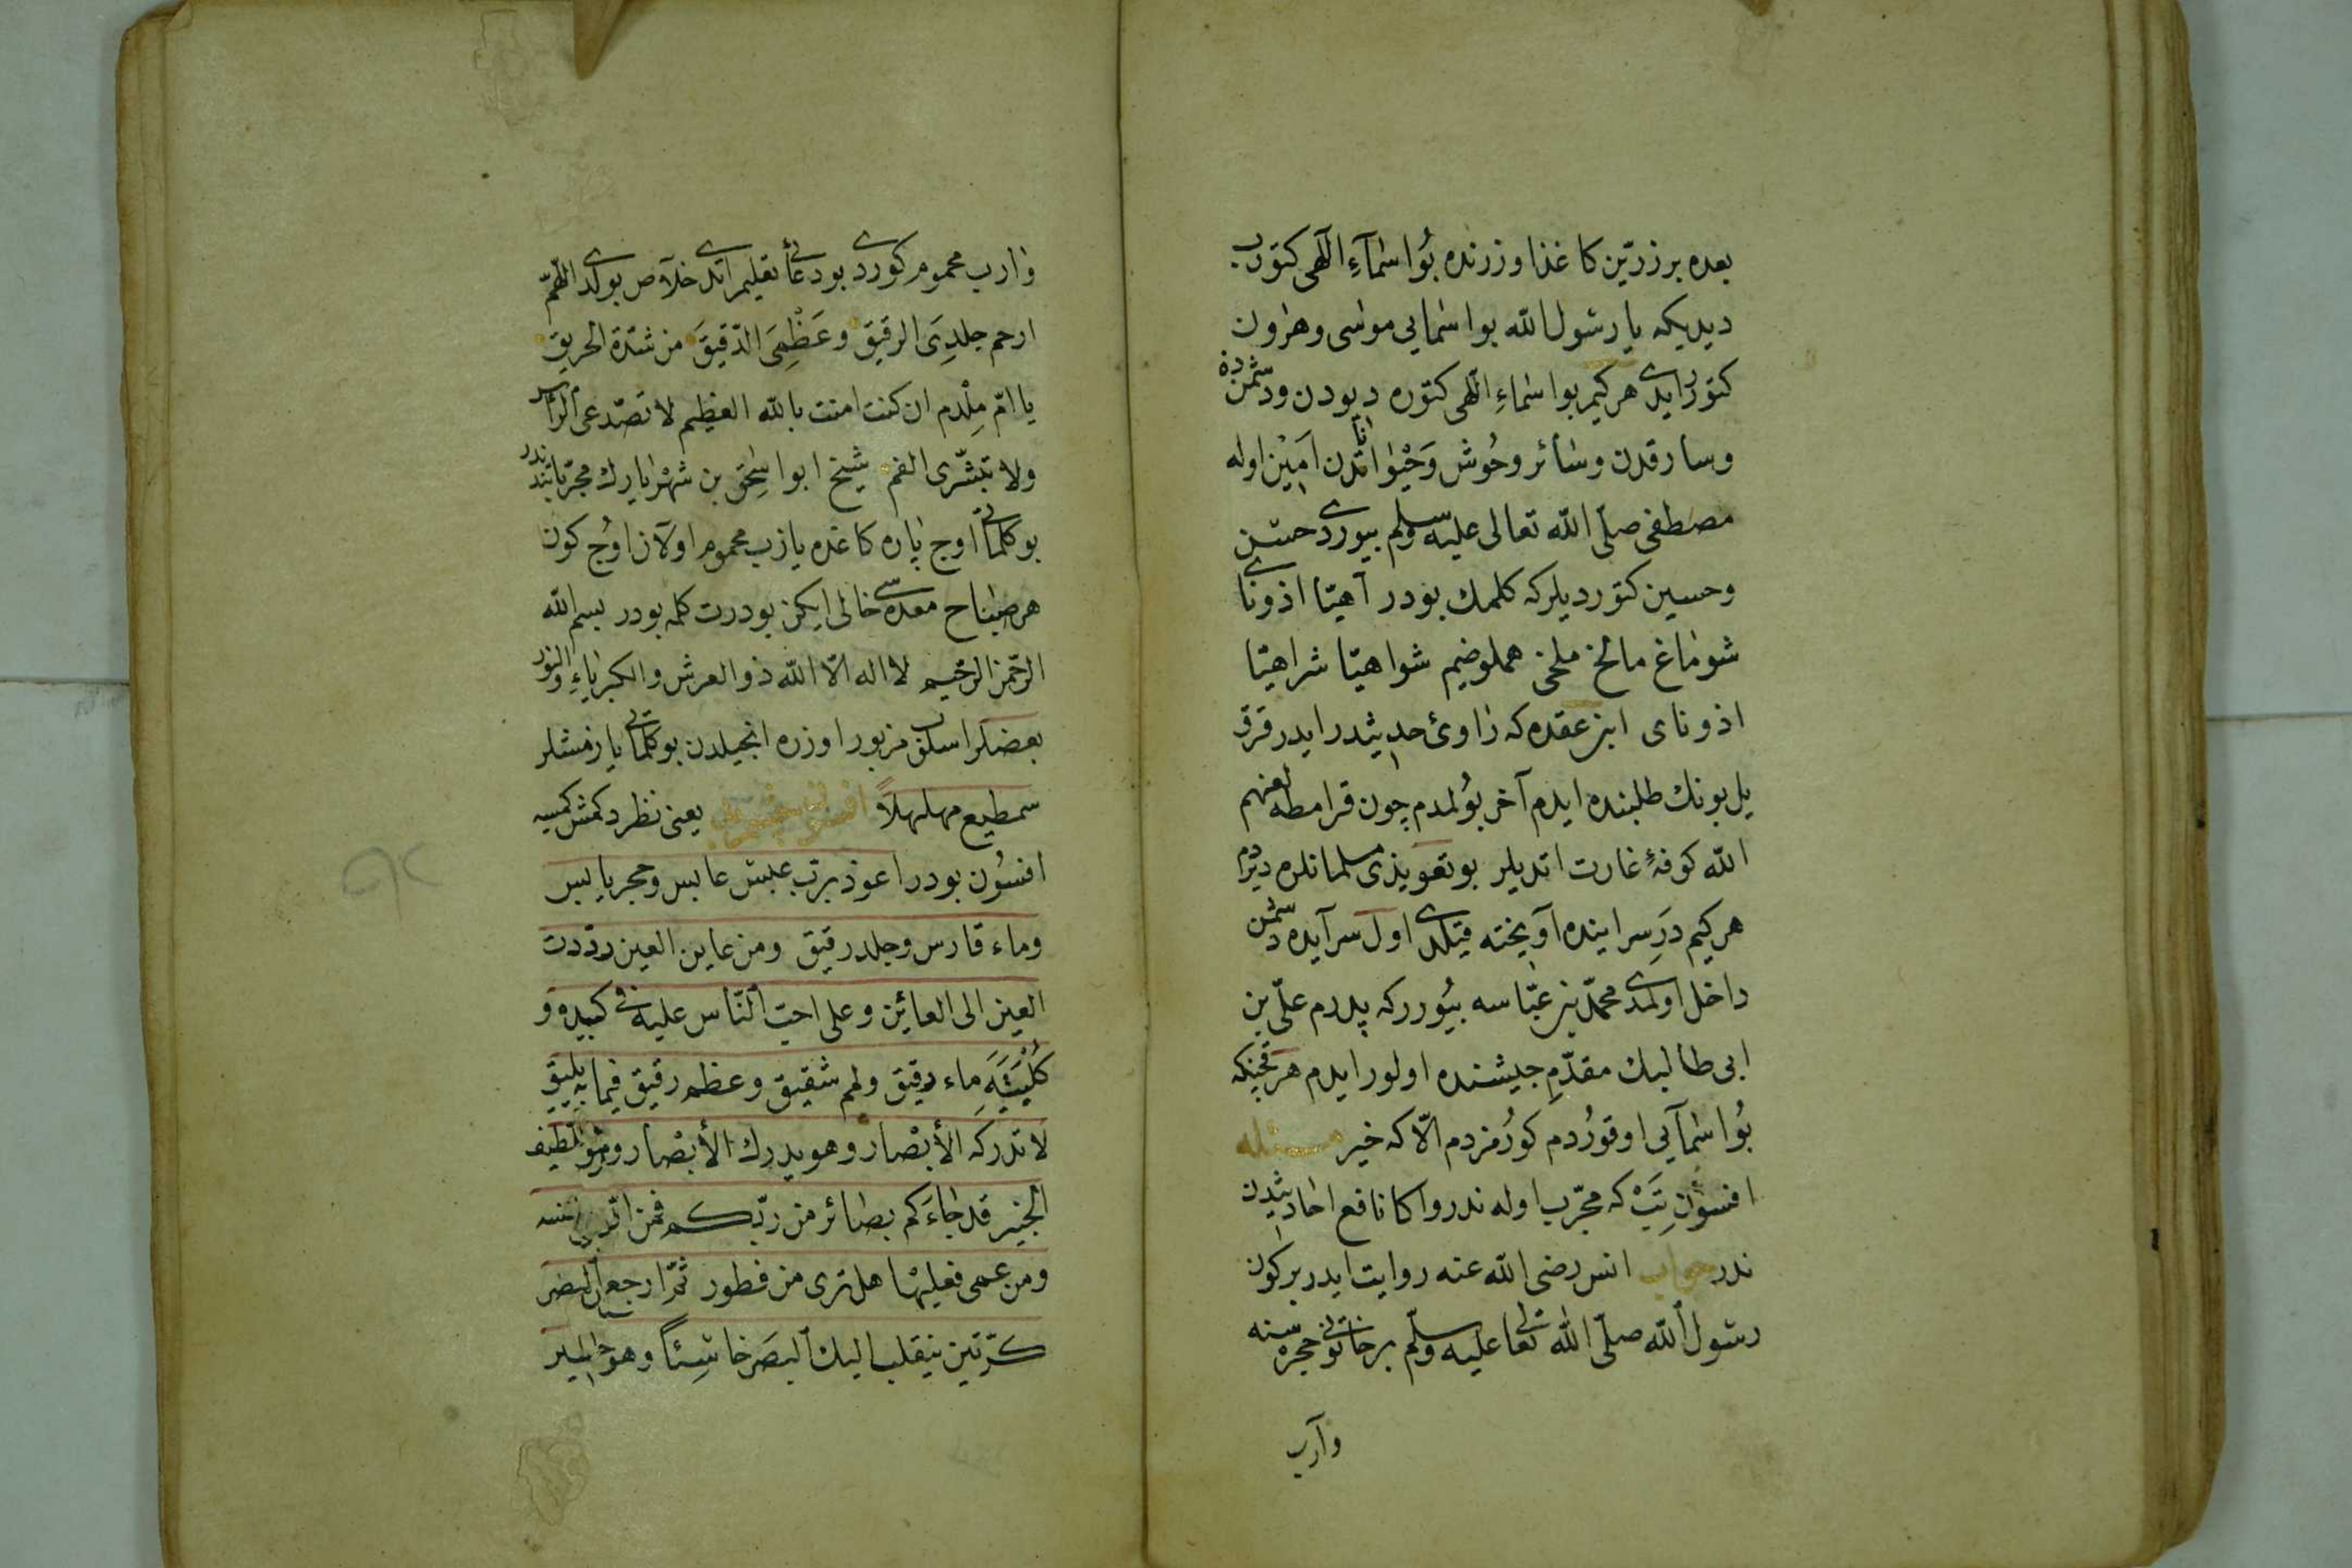 بعده بر زرّين كاغذ اوزرنده بُو اسْمآءِ الٓهى كتوُرب
ديديكه يا رسُول الله بو اسْمايى موسٰى وهٰرون
كتورْ ايدى هر كيم بو اسْماءِ الٓهى كتوره ديودن ودشمندن
وسارقدن وسٰائر وحُوش وَحَيْوٰاناتدن اَمِيْن اوله
مصطفى صلّى الله تعالى عليه وسلم بيوردى حسن
وحسين كتورديلر كه كلمك بودر آهيّا اذوناى
شوماغ ماالخ ملخى هملوضيم شواهيّا شراهيّا
اذوناى ابن عقده كه رٰاوئ حديثدر ايدر قرق
يل بونك طلبنده ايدم آخر بُولمدم چون قرامطه لعنهم
الله كوفهٔ غارت اتديلر بو تعويذى مسلمانلره ديردم
هر كيم دَرِ سراينده آويخته قيلدى اول سرآيده دشمن
داخل اولمدى محمّد بن عبّاسه بيُورر كه پدرم علىّ بن
ابى طالبك مقدّمِ جيشنده اولور ايدم هر قچنكه
بُو اسْمآيى اوقورُدم كورُمزدم الّا كه خير مسئله
افسُونِ تَبْ كه مجرّب اوله ندر واكا نافع احاديثدن
ندر جواب انس رضى الله عنه روايت ايدر بر كون
رسُول الله صلّى الله تعالى عليه وسلّم بر خاتونى حجره سنه
وآرب
وارب محموم كوردى بو دعٰائى تعليم اتدى خلاص بولدى اللّهمّ
ارحم جلدِىَ الرقيق وعَظْمِىَ الدّقيقَ من شدّة الحريق
يا امّ مِلْدم ان كنت امنت بالله العظيم لا تصّدعى الرّأس
ولا تبتشّرى الفم شيخ ابو اسْحٰق بن شهريارك مجرّباتندندر
بو كلماتى اوج پاره كاغده يازب محموم اولان اوُج كون
هر صبٰاح معده سى خالى ايكن بودرت كلمه بودر بسم الله
الرّحمن الرّحيم لا اله الّا الله ذو العرش والكبرياءِ والنّور
بعضلر اسلوب مزبور اوزره انجيلدن بو كلماتى يازمشلر
سمطيع مهلهلاً افسون يعنى نظر دكمش كمسيه
افسُون بودر اعوذ بربّ عبس عابس وحجر يابس
وماء قارس وجلد رقيق ومن عاين العين رددت
العين الى العائين وعلى احبّ النّاس عليه فى كبده و
كُلْيَتَيْهِ ماء رقيق ولحم شقيق وعظم رقيق فيما به يليق
لا تدركه الأبْصار وهو يدرك الأبْصار وهو اللّطيف
الخبير قد جٰاءَكم بصٰائر من ربّكم فمن ابصر فلنفسه
ومن عمى فعليها هل ترى من فطور ثمّ ارجع البصر
كرّتين ينقلب اليك البصَر خاسِئاً وهو حسير